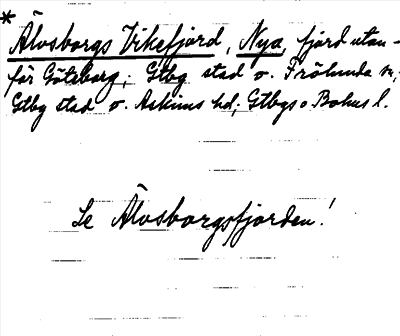 * Älvsborgs Vikefjord, Nya, fjord utan-
för Göteborg; Gtbg stad o. Frölunda sn;
Gtbg stad o. Askims hd; Gtbgs o Bohus l.
Se Älvsborgsfjorden!